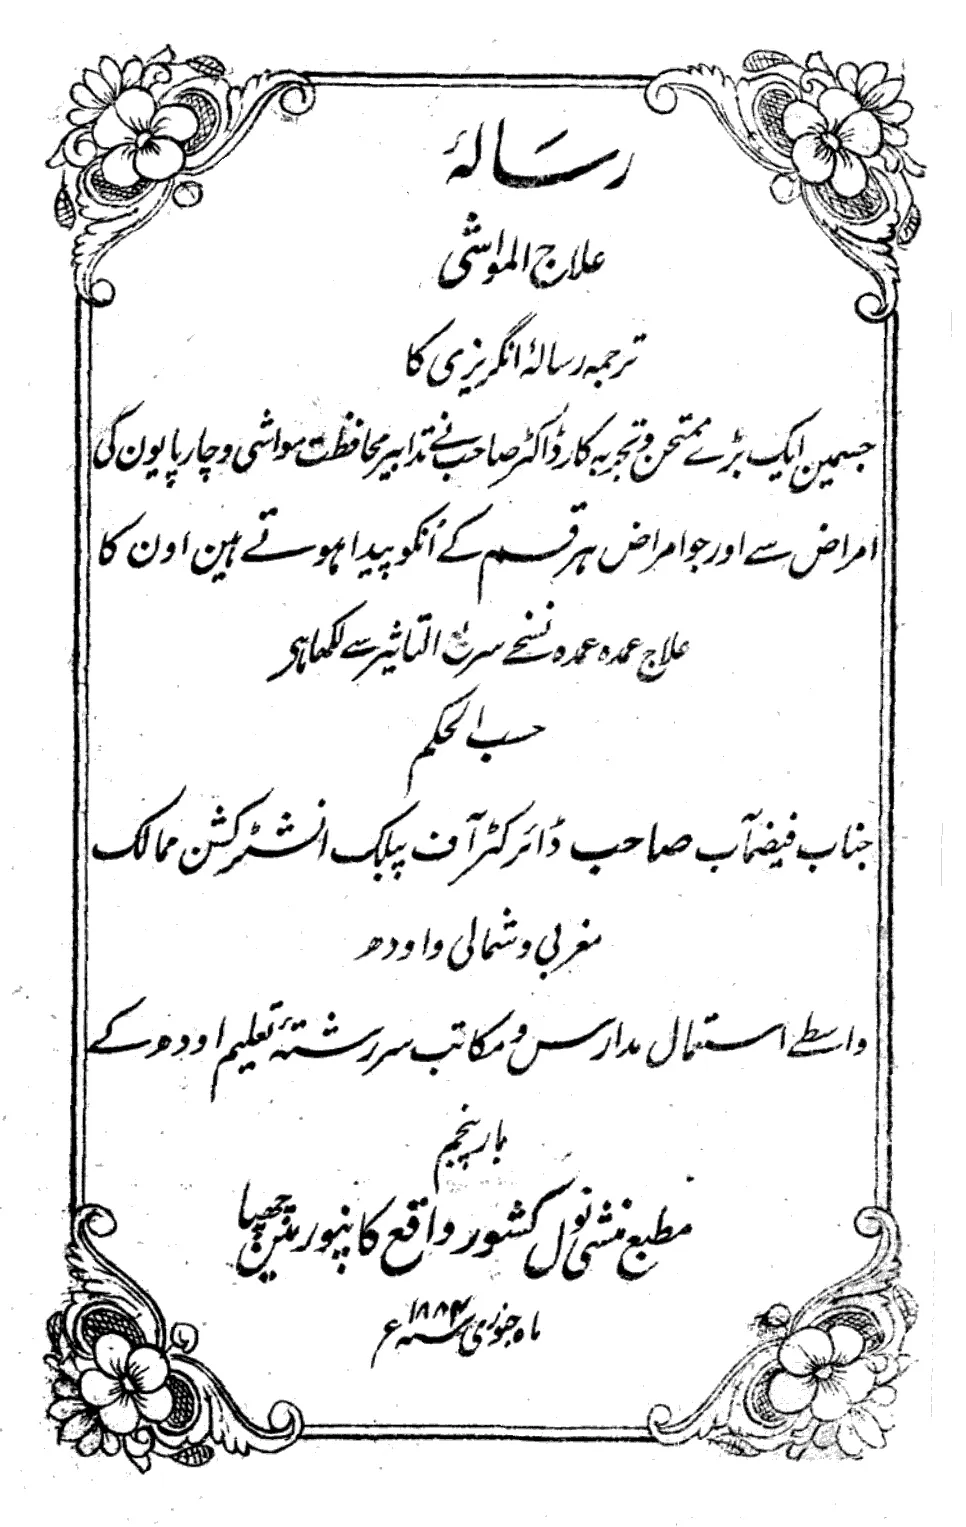 رسالۂ
علاج المواشی
ترجمہ رسالۂ انگریزی کا
جسمین ایک بڑے ممتحن و تجربہ کار ڈاکٹر صاحب نے تدابیر محافظت مواشی و چارپایون کی
امراض سے اور جو امراض ہر قسم کے اُنکو پیدا ہوتے ہین اون کا
علاج عمدہ عمدہ نسخے سریع التاثیر سے لکھا ہی
حسب الحکم
جناب فیضمآب صاحب ڈائرکٹر آف پبلک انشٹرکشن ممالک
مغربی و شمالی و اودھ
واسطے استمال مدارس و مکاتب سررشتۂ تعلیم اودھ کے
بار پنجم
مطبع منشی نول کشور واقع کانپور مین چھپا
ماہ جنوری سنہ ء